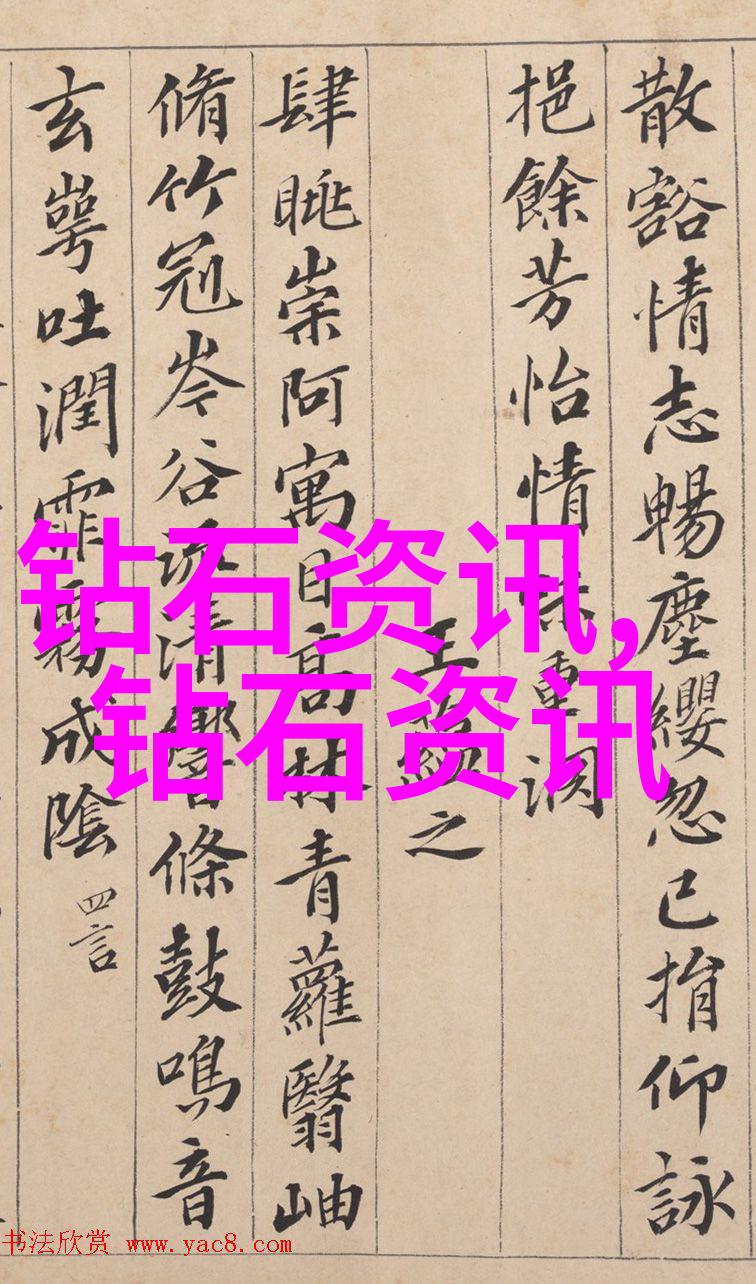 散豁情志暢塵纓忽已捐仰詠
挹餘芳怡情味重淵
王之
肆眺崇阿寓目高林青蘿翳岫
脩竹冠岑谷流清響條鼓鳴音
玄崿吐潤霏霧成陰 四言
钻石资讯,
钻石资讯
书法欣赏 www.yac8.com